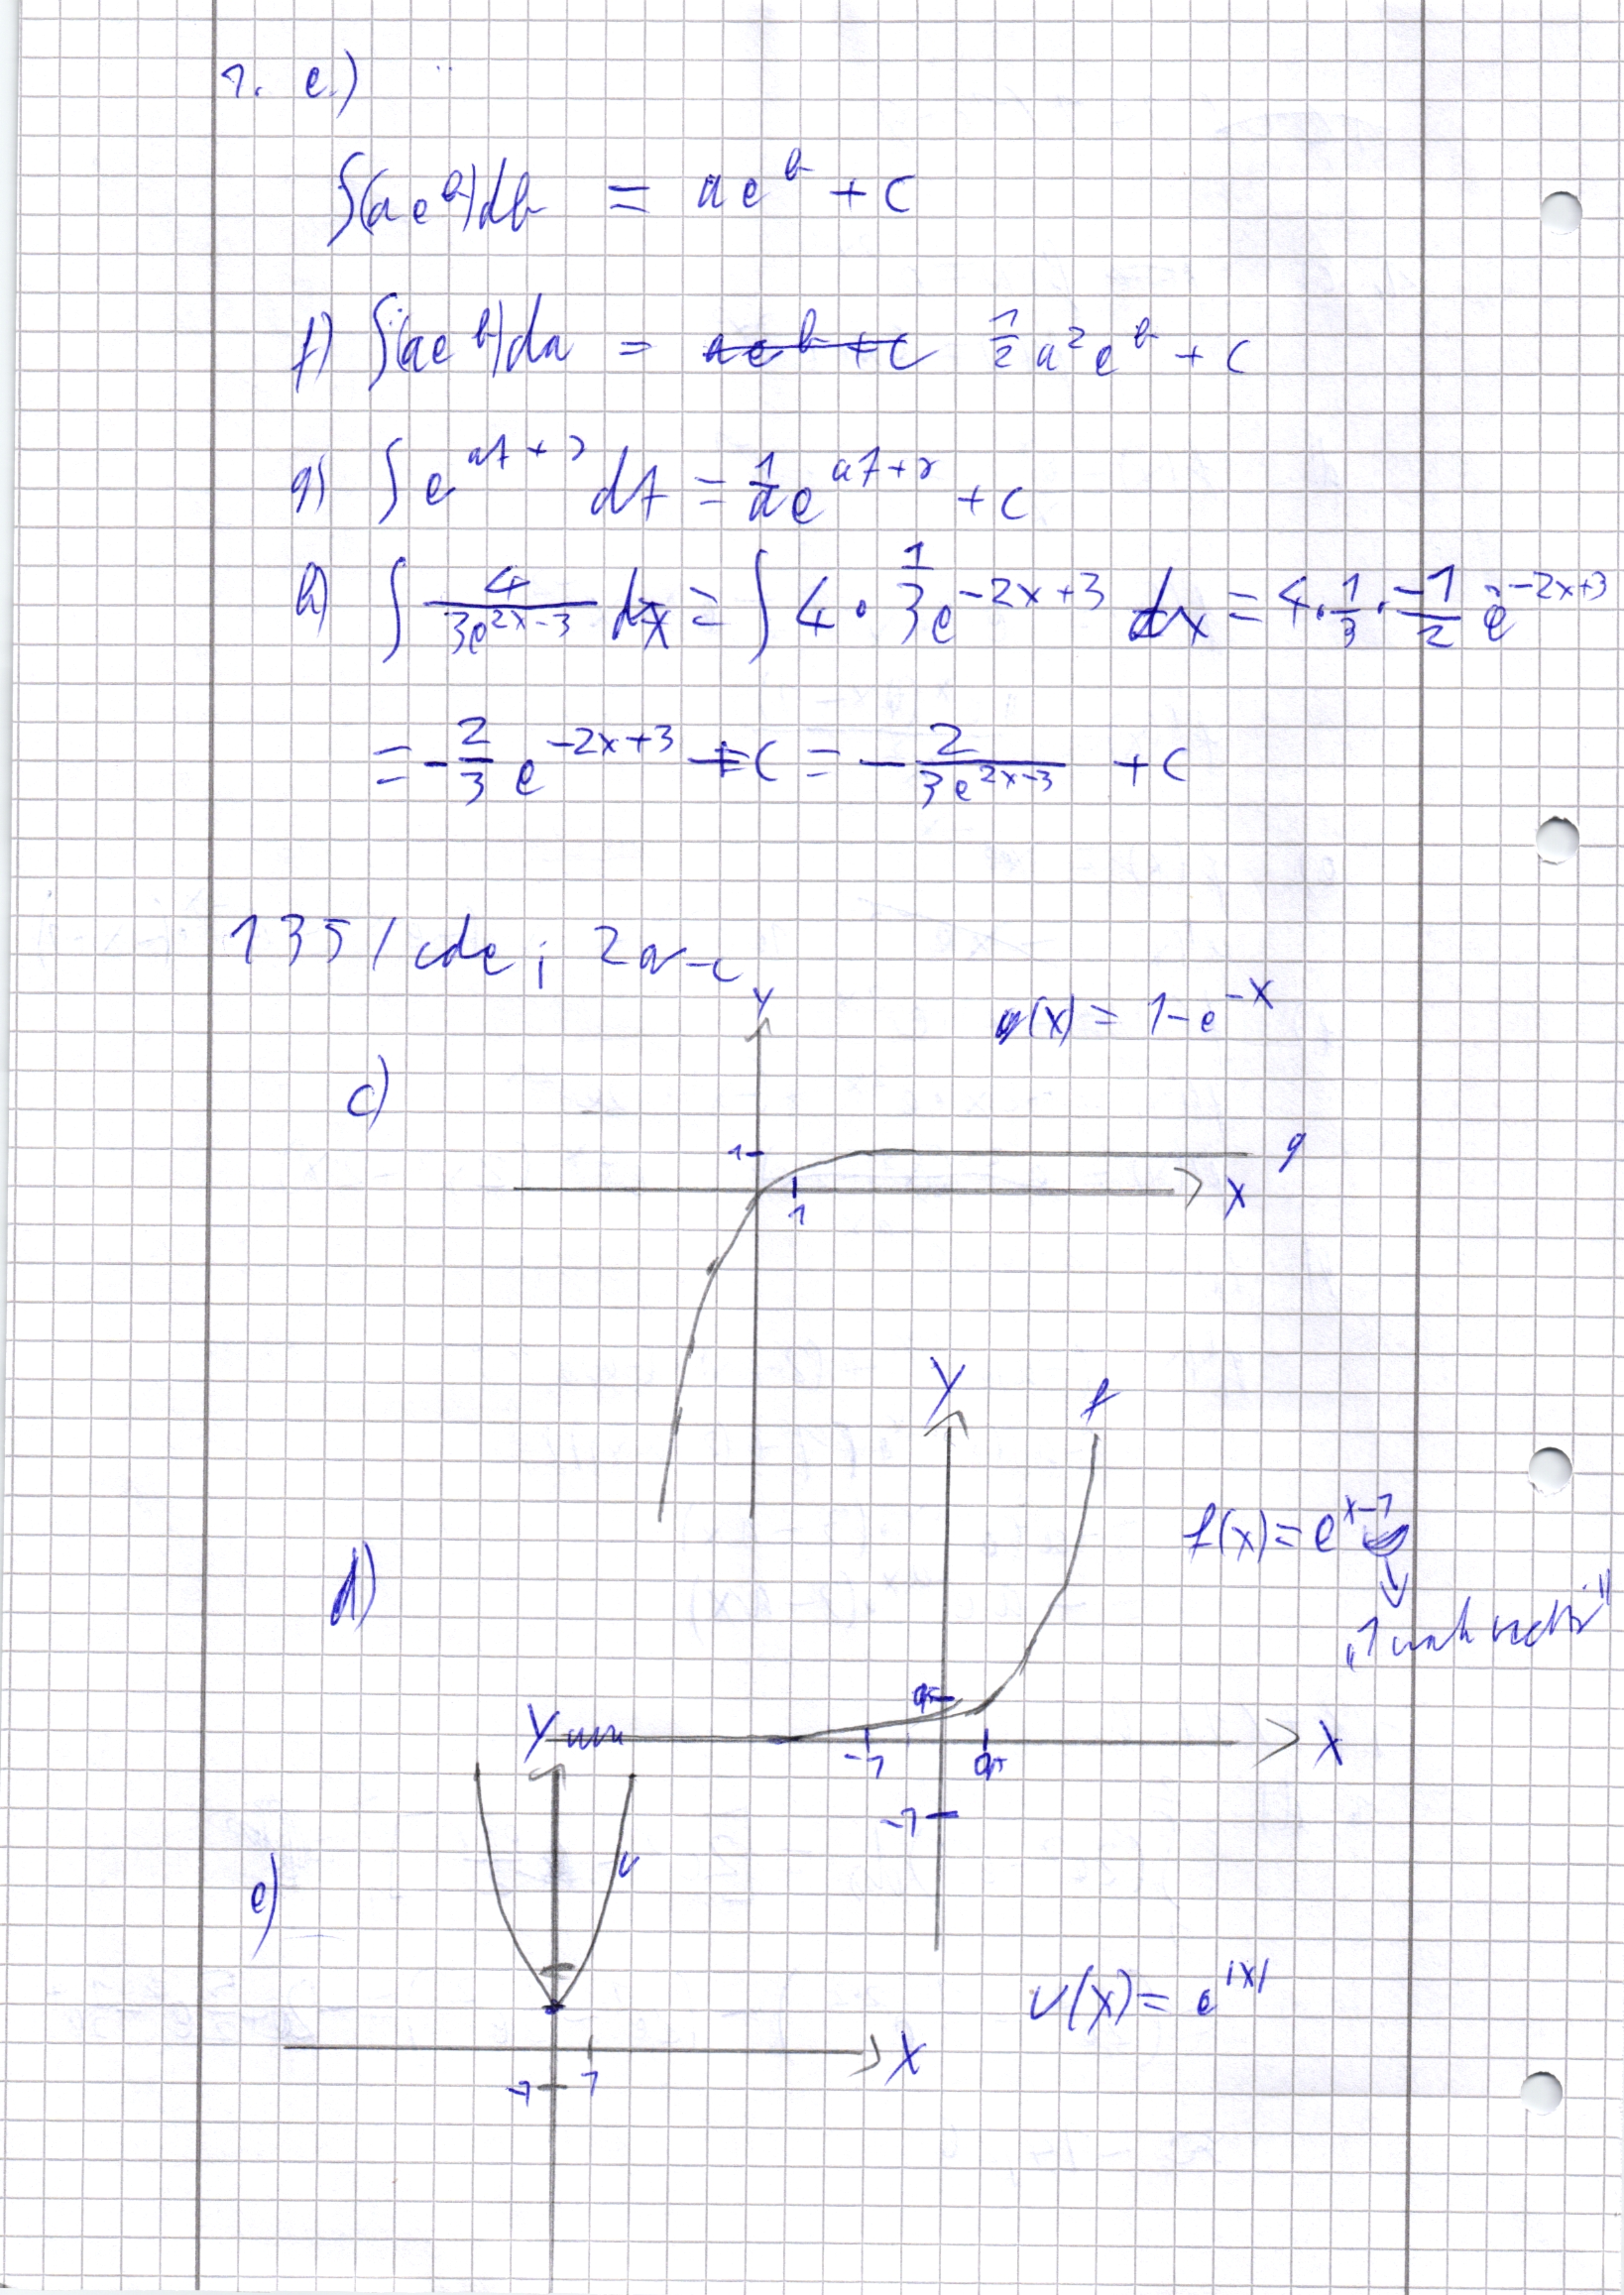 1. e.)
∫(a e^b) db = a e^b + c
f) ∫(a e^b) da = a e^b + c 1/2 a² e^b + c
g) ∫ e^(at + r) dt = 1/a e^(at + r) + c
h) ∫ 4/(3e^(2x-3)) dx = ∫ 4 · 1/3 e^(-2x+3) dx = 4 · 1/3 · -1/2 e^(-2x+3)
= -2/3 e^(-2x+3) + C = - 2/(3e^(2x-3)) + C
135/cde ; 2a-c
y
g(x) = 1 - e^(-x)
c)
1
g
x
1
y
f
f(x) = e^(x-1)
d)
„1 nach rechts"
0,5
y
-1
0,5
x
-1
v
e)
v(x) = e^|x|
x
-1
1